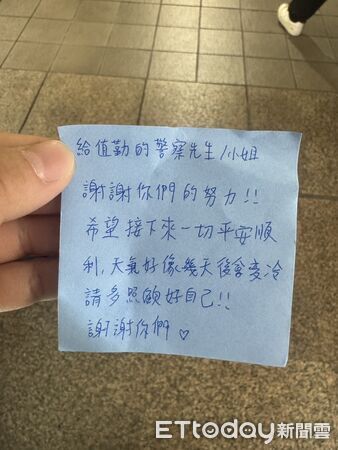 給值勤的警察先生/小姐
謝謝你們的努力!!
希望接下來一切平安順
利,天氣好像幾天後會變冷
請多照顧好自己!!
謝謝你們♡
ETtoday新聞雲